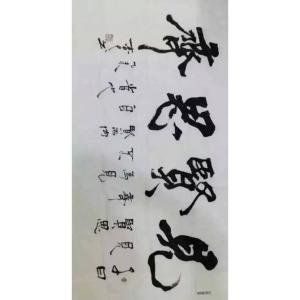 見賢思齊
子曰見賢思齊焉見不賢而內自省也